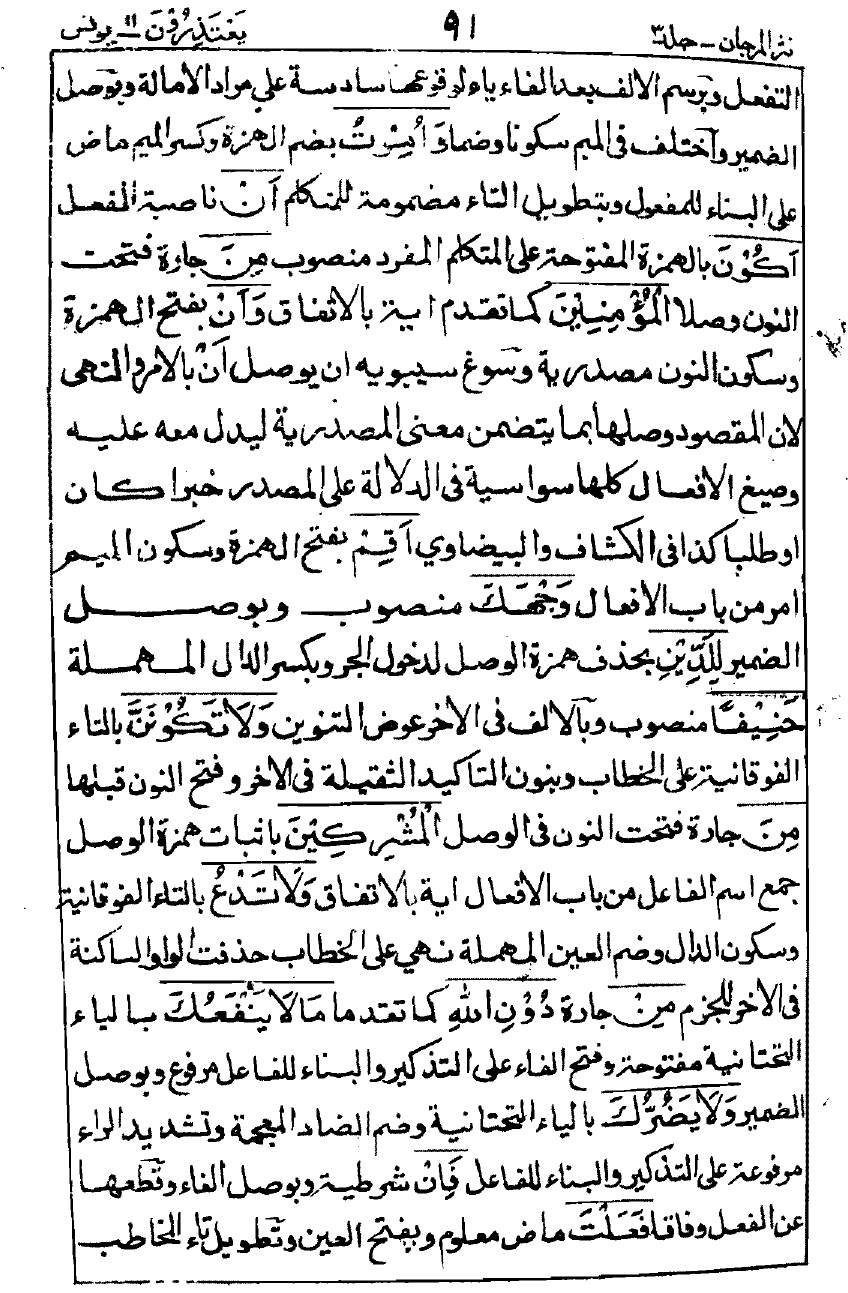 نثر المرجان – جلد ٣ ٩١ يعتذرون ١١ – يونس
التفعل وبرسم الالف بعد الفاء ياء لوقوعها سادسة على مراد الامالة وبوصل
الضمير واختلف فى الميم سكونا وضما وَأُمِرْتُ بضم الهمزة وكسر الميم ماض
على البناء للمفعول وبتطويل التاء مضمومة للمتكلم أَنْ ناصبة الفعل
أَكُوْنَ بالهمزة المفتوحة على المتكلم المفرد منصوب مِنَ جارة فتحت
النون وصلا الْمُؤْمِنِيْنَ كما تقدم اية بالاتفاق وَأَنْ بفتح الهمزة
وسكون النون مصدرية وسوغ سيبويه ان يوصل أَنْ بالامر والنهى
لان المقصود وصلها بما يتضمن معنى المصدرية ليدل معه عليه
وصيغ الافعال كلها سواسية فى الدلالة على المصدر خبرا كان
او طلبا كذا فى الكشاف والبيضاوي أَقِمْ بفتح الهمزة وسكون الميم
امر من باب الافعال وَجْهَكَ منصوب وبوصل
الضمير لِلدِّيْنِ بحذف همزة الوصل لدخول الجر وبكسر الدال المهملة
حَنِيْفًا منصوب وبالالف فى الاخر عوض التنوين وَلَا تَكُوْنَنَّ بالتاء
الفوقانية على الخطاب وبنون التاكيد الثقيلة فى الاخر وفتح النون قبلها
مِنَ جارة فتحت النون فى الوصل الْمُشْرِكِيْنَ باثبات همزة الوصل
جمع اسم الفاعل من باب الافعال اية بالاتفاق وَلَا تَدْعُ بالتاء الفوقانية
وسكون الدال وضم العين المهملة نهي على الخطاب حذفت الواو الساكنة
فى الاخر للجزم مِنْ جارة دُوْنِ اللهِ كما تقدما مَا لَا يَنْفَعُكَ بالياء
التحتانية مفتوحة وفتح الفاء على التذكير والبناء للفاعل مرفوع وبوصل
الضمير وَلَا يَضُرُّكَ بالياء التحتانية وضم الضاد المعجمة وتشديد الراء
مرفوعة على التذكير والبناء للفاعل فَإِنْ شرطية وبوصل الفاء وقطعها
عن الفعل وفاقا فَعَلْتَ ماض معلوم وبفتح العين وتطويل تاء المخاطب